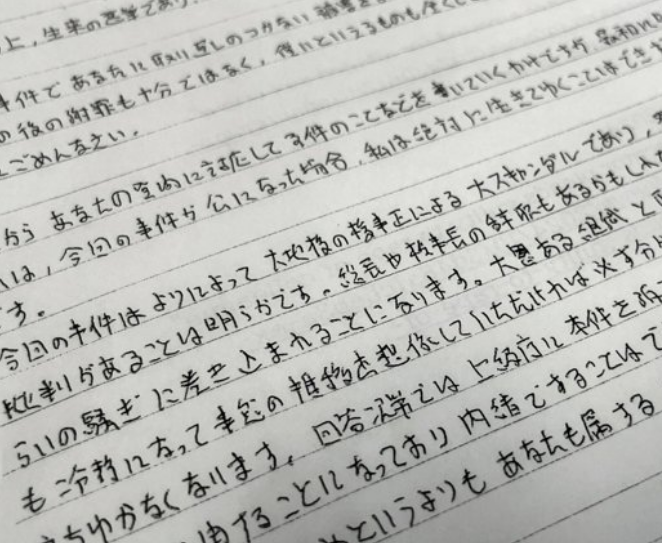 上,生来の
事件であなたに取り返しのつかない被害を
の後の謝罪も十分ではなく,償いといえるものも全くし
ごめんなさい。
から あなたの室内に対応して事件のことなどを書いていくわけですが,令和
は,今回の事件が公になった場合,私は絶対に生きてゆくことはでき
す。
今回の事件はよりによって 大地検の検事正による 大スキャンダルであり,
批判があることは明らかです。総長や検事長の辞職もあるかもしれ
らいの騒ぎに巻き込まれることになります。大恩ある組織と
も冷静になって事態の推移を想像していただければ必ず分
ちゆかなくなります。回答次第では上級庁に本件を
することになっており 内緒ですることは
というよりも あなたも属する